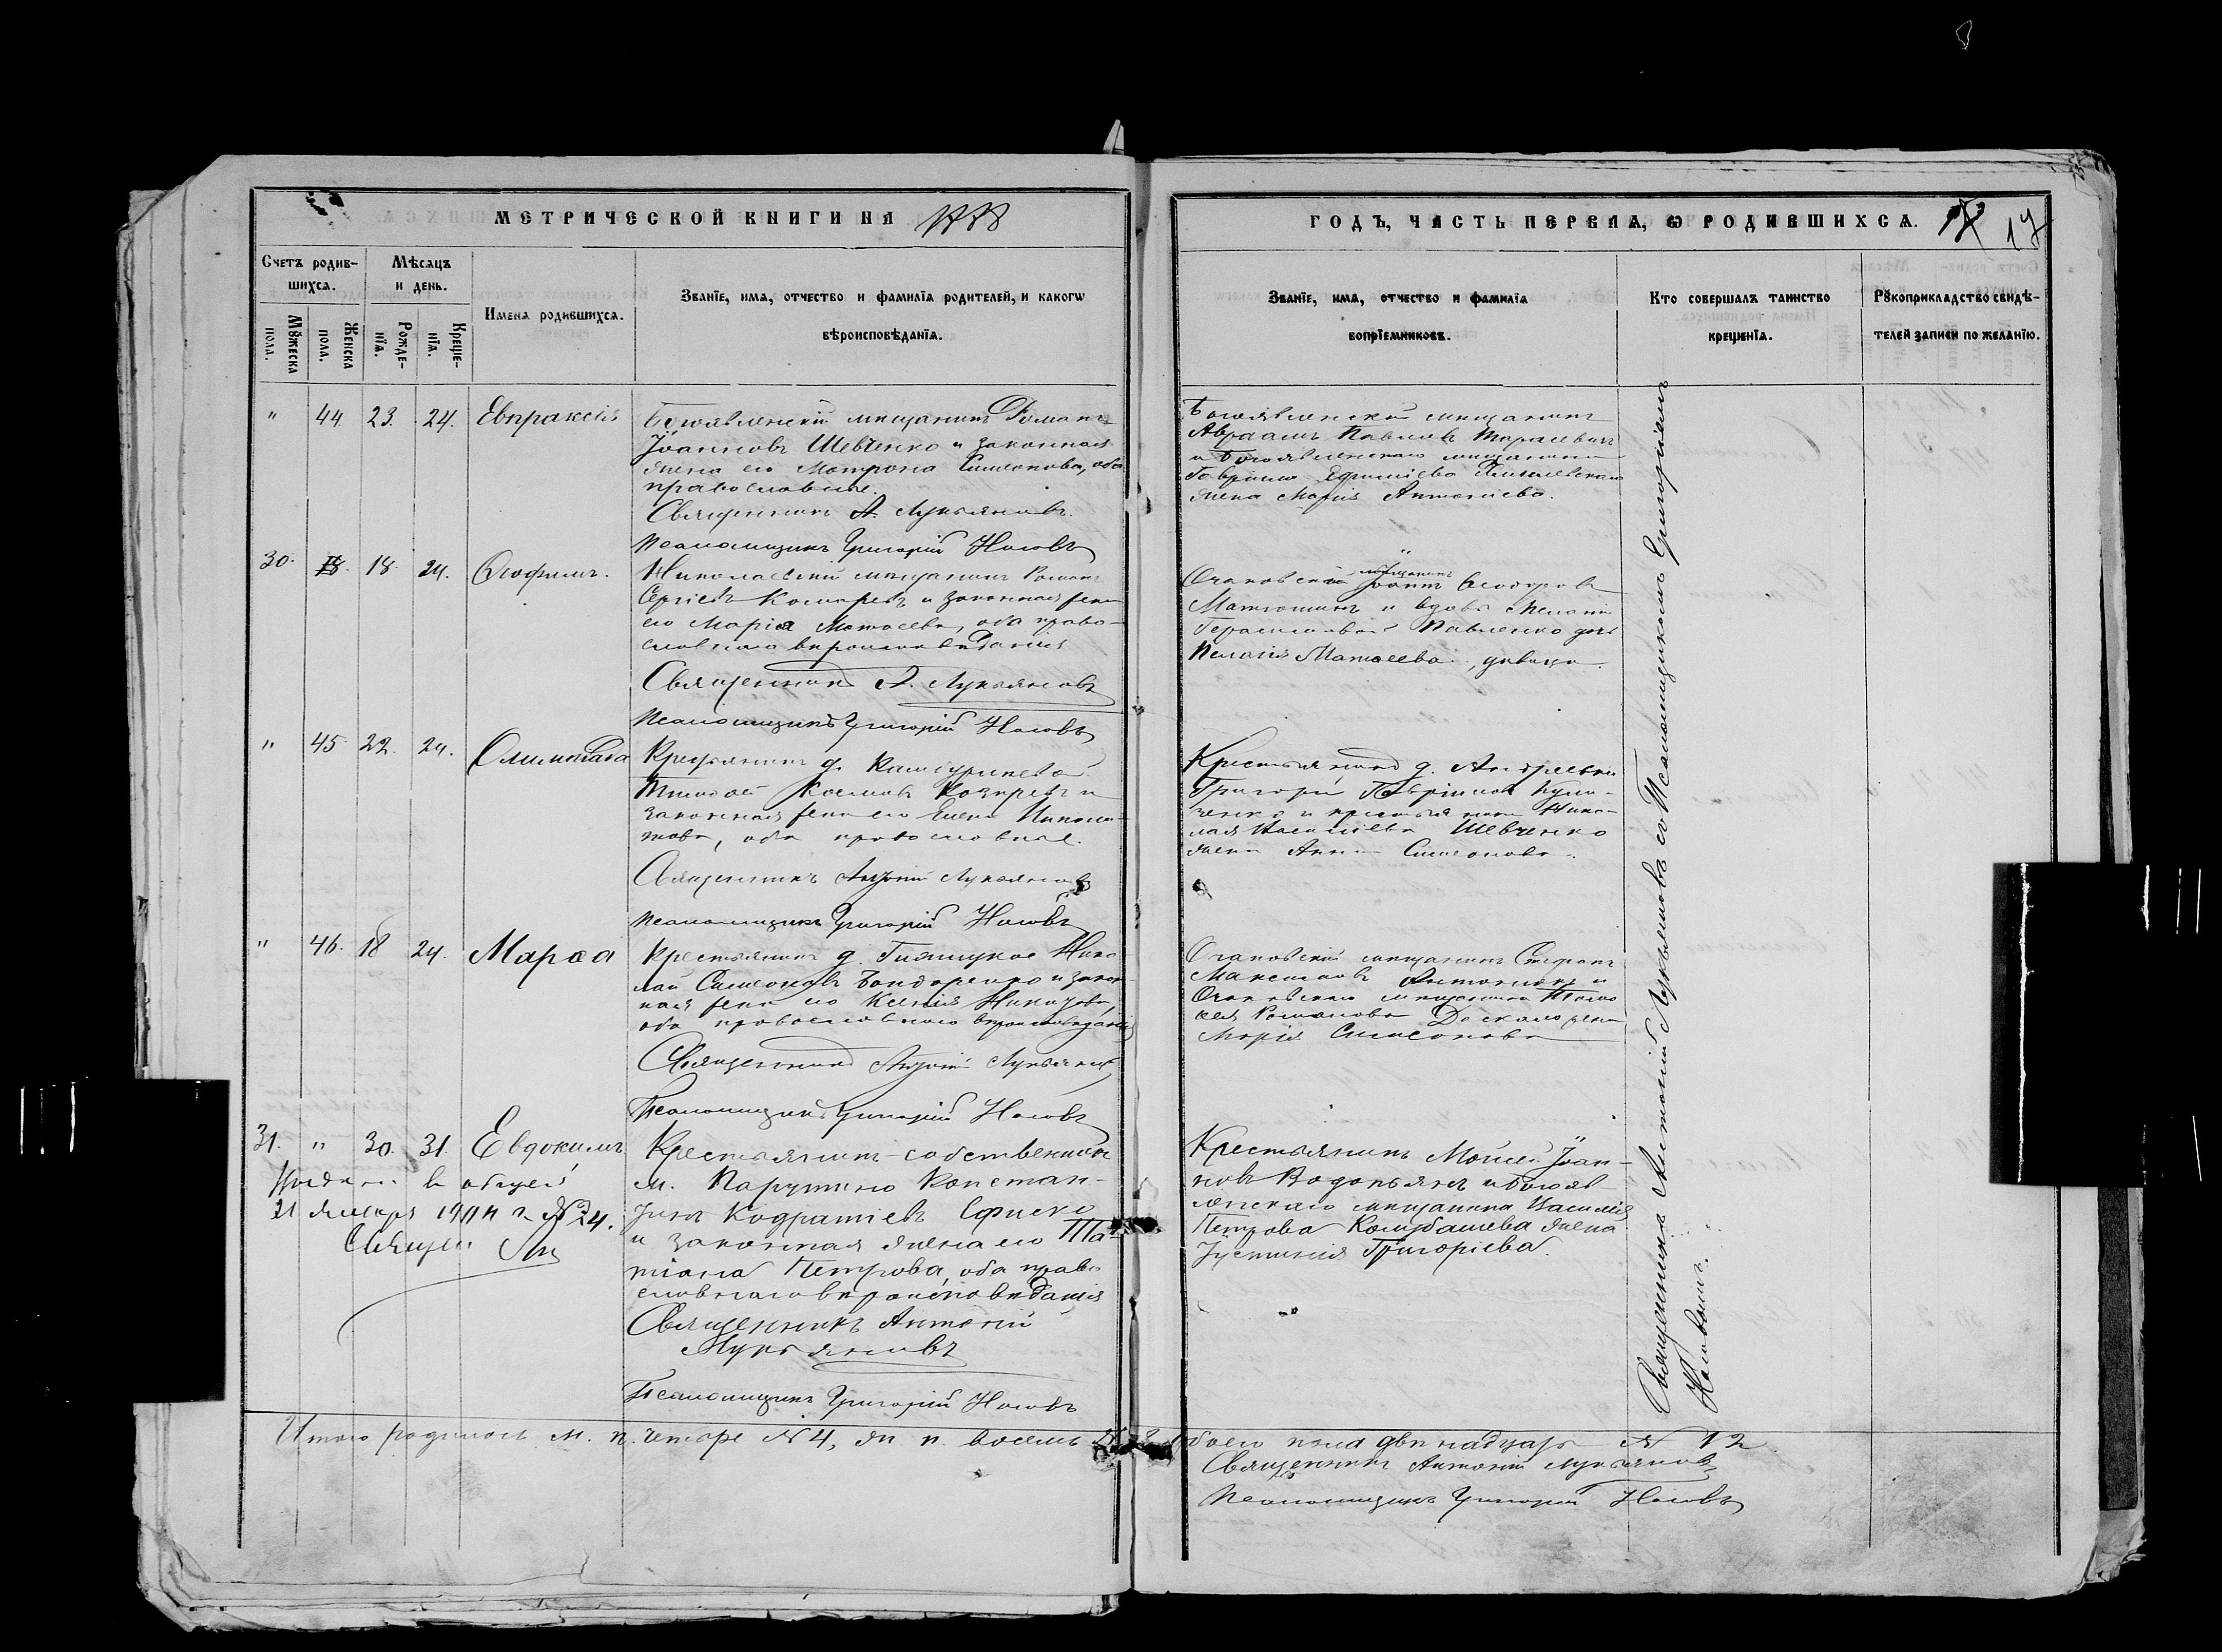 МЕТРИЧЕСКОЙ КНИГИ НА 1888
ГОДЪ, ЧАСТЬ ПЕРВАЯ, Ѡ РОДИВШИХСѦ. 17
Счетъ родив-
шихсѧ.
Мѣсѧцъ
и день.
Мꙋжеска
пола.
Женска
пола.
Рожде-
нїѧ.
Креще-
нїѧ.
Имена родившихсѧ.
Званїе, имѧ, отчество и фамилїѧ родителей, и какогѡ
вѣроисповѣданїѧ.
Званїе, имѧ, отчество и фамилїѧ
воспрїемниковъ.
Кто совершалъ таинство
крещенїѧ.
Рꙋкоприкладство свидѣ-
телей записи по желанїю.
" 44 23. 24. Евпраксія
Богоявленскій мѣщанинъ Романъ
Іоанновъ Шевченко и законная
жена его Матрона Симеонова, оба
православные.
Священникъ А. Лукьяновъ.
Псаломщикъ Григорій Носовъ
Богоявленскій мѣщанинъ
Авраамъ Павловъ Тарасевичъ
и Богоявленскаго мѣщанина
Гавріила Ефиміева
жена Марія Антоніева.
30. 18. 24. Ѳеофилъ.
Николаевскій мѣщанинъ Романъ
Сергіевъ Комаревъ и законная жена
его Марія Матѳеева, оба право-
славнаго вѣроисповѣданія
Священникъ А. Лукьяновъ
Псаломщикъ Григорій Носовъ
Очаковскій мѣщанинъ Іоаннъ Ѳеодоровъ
и вдовы
Герасимовой Павленко дочь
Пелагія Матѳеева, дѣвица.
" 45 22. 24. Олимпіада
Крестьянинъ д.
Тимоѳей Космовъ и
законная жена его Елена
оба православные.
Священникъ Антоній Лукьяновъ
Псаломщикъ Григорій Носовъ
Крестьянинъ д. Андреевки
Григорій Гавріиловъ
и крестьянина Нико-
лая Шевченко
жена Анна Симеонова.
" 46. 18 24. Марѳа
Крестьянинъ д. Нико-
лай Симеоновъ Бондаренко и закон-
ная жена его Ксенія
оба православнаго вѣроисповѣданія
Священникъ Антоній Лукьяновъ
Псаломщикъ Григорій Носовъ
Очаковскій мѣщанинъ Стефанъ
Максимовъ и
Очаковскаго мѣщанина Тимо-
ѳея Романова жена
Марія Симеонова
31. " 30. 31. Евдокимъ
Крестьянинъ-собственникъ
м. Парутино Констан-
тинъ Кодратіевъ
и законная жена его Та-
тіана Петрова, оба право-
славнаго вѣроисповѣданія
Священникъ Антоній
Лукьяновъ
Псаломщикъ Григорій Носовъ
21 Января № 24.
Крестьянинъ Моисей Іоан-
новъ Водопьянъ и Богояв-
ленскаго мѣщанина Василія
Петрова Колубашева жена
Іустинія Григоріева.
Священникъ Антоній Лукьяновъ съ Псаломщикомъ Григоріемъ
Носовымъ.
Итого родилось м. п. четыре № 4, ж. п. восемь № 8, обоего пола двѣнадцать № 12
Священникъ Антоній Лукьяновъ
Псаломщикъ Григорій Носовъ